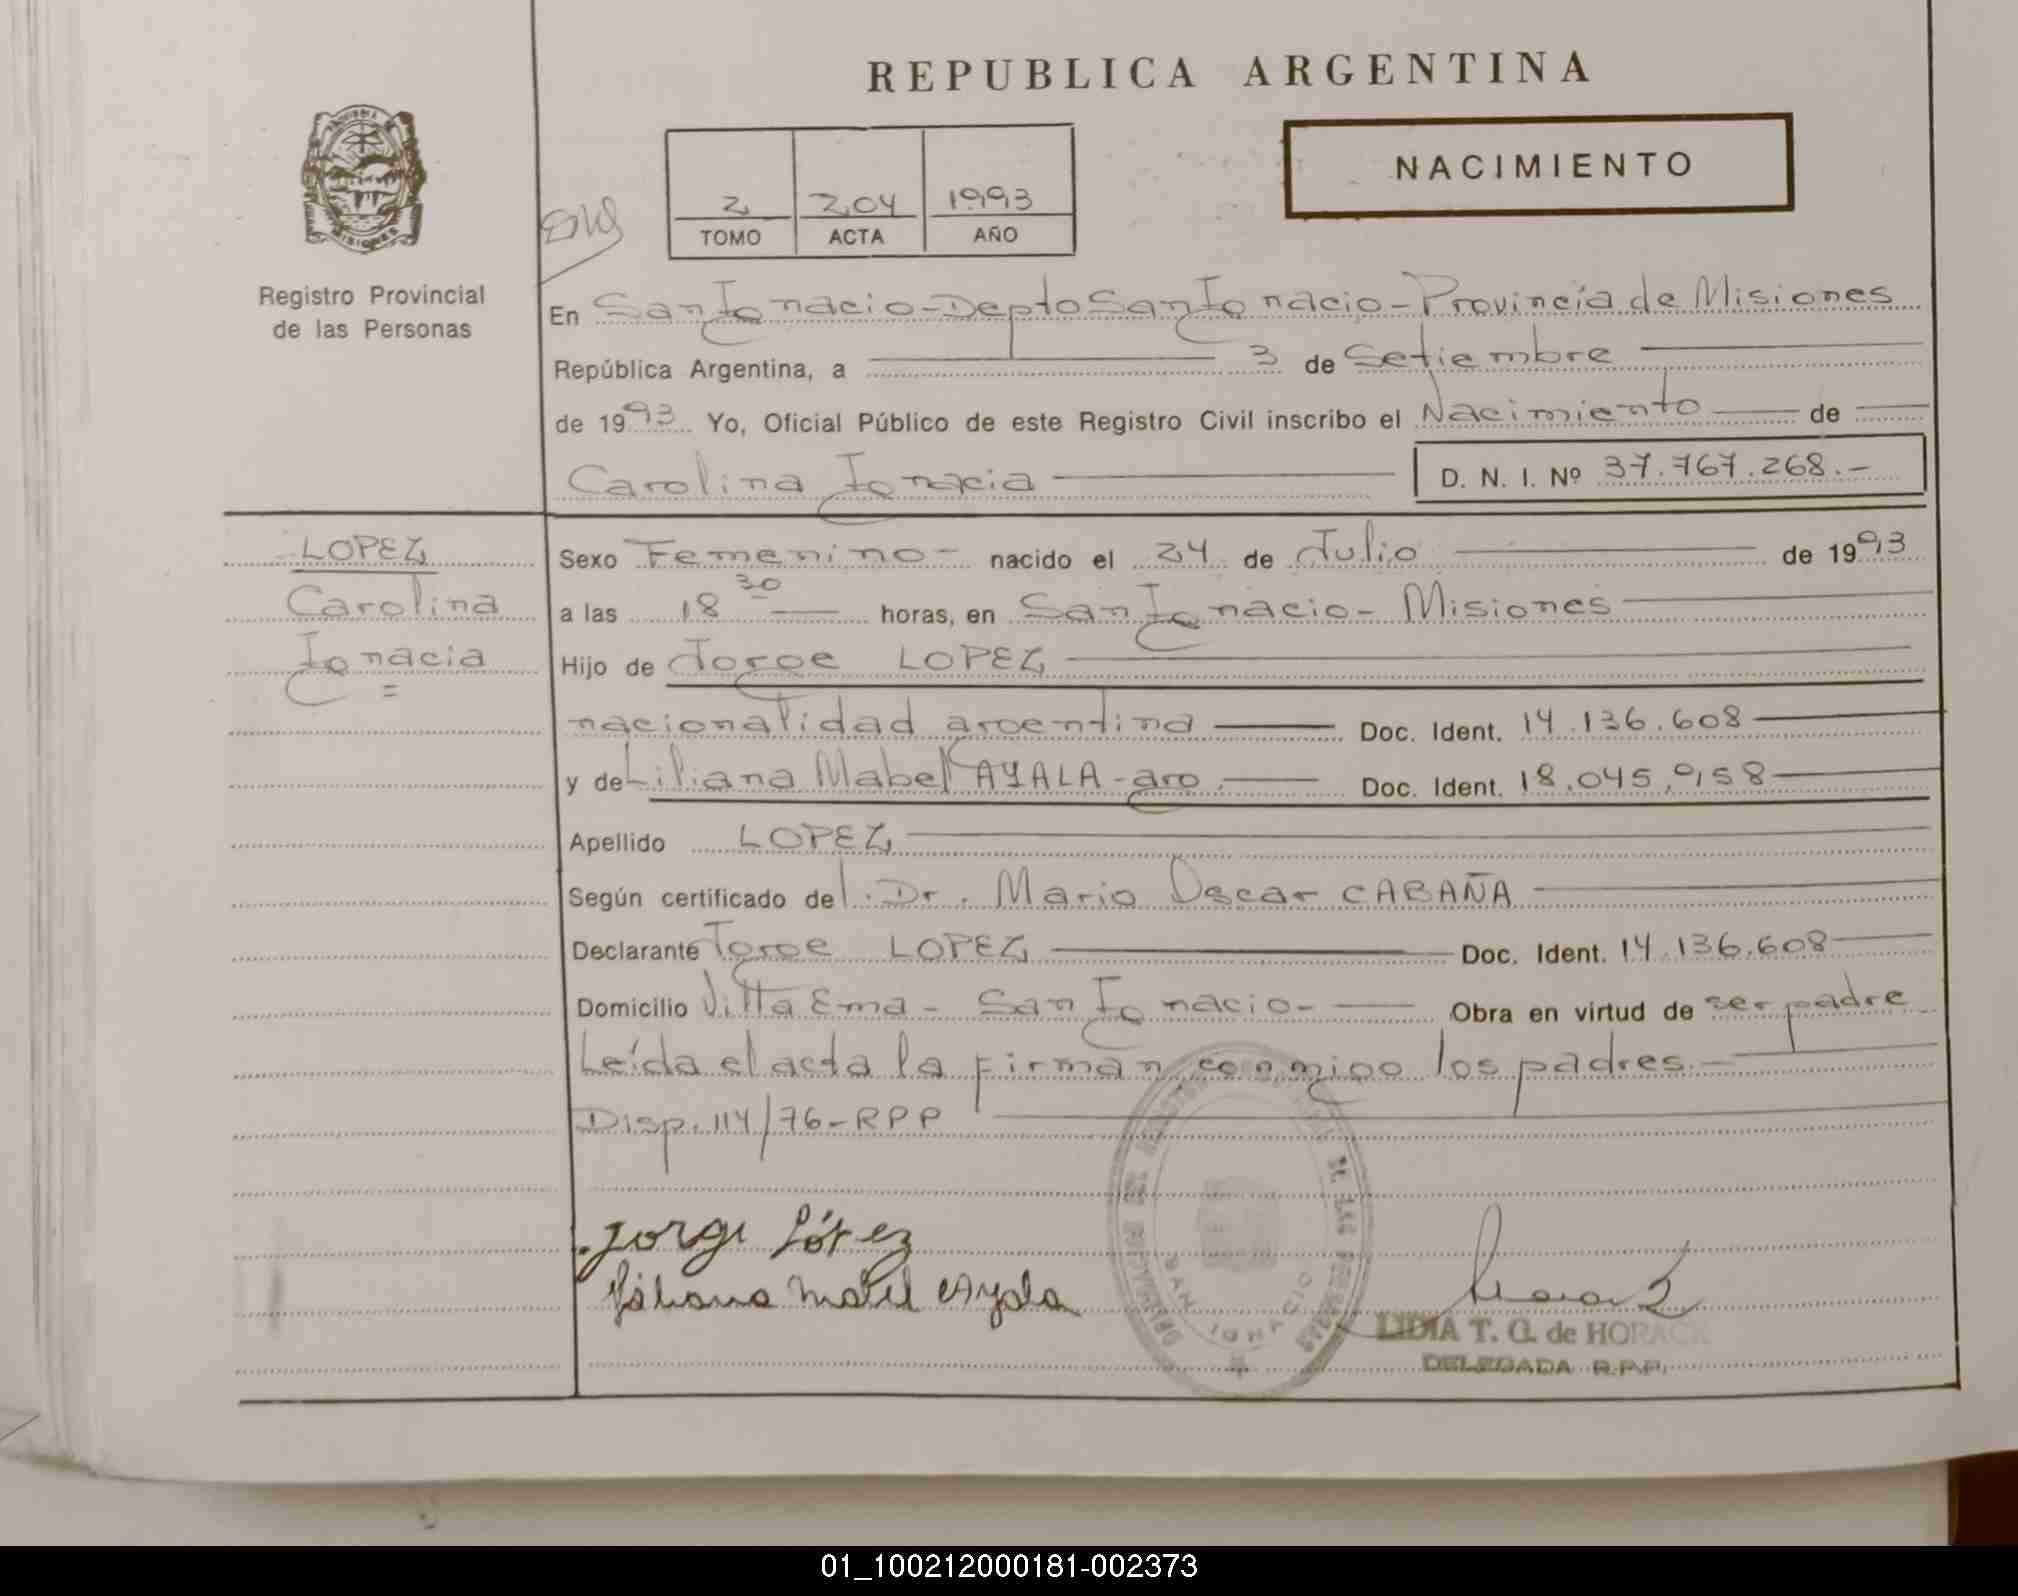 REPUBLICA ARGENTINA
NACIMIENTO
2 204 1993
TOMO ACTA AÑO
MISIONES
Registro Provincial
de las Personas
En San Ignacio - Depto San Ignacio - Provincia de Misiones
República Argentina, a 3 de Setiembre
de 1993 Yo, Oficial Público de este Registro Civil inscribo el Nacimiento de
Carolina Ignacia D. N. I. Nº 37.767.268.-
LOPEZ
Carolina
Ignacia
Sexo Femenino - nacido el 24 de Julio de 1993
a las 18 30 horas, en San Ignacio - Misiones
Hijo de Jorge LOPEZ
nacionalidad argentina Doc. Ident. 14.136.608
y de Liliana Mabel AYALA - arg. Doc. Ident. 18.045.958
Apellido LOPEZ
Según certificado del Dr. Mario Oscar CABAÑA
Declarante Jorge LOPEZ Doc. Ident. 14.136.608
Domicilio Villa Ema - San Ignacio - Obra en virtud de ser padre
Leída el acta la firman conmigo los padres.
Disp. 114/76-RPP
Jorge López
Liliana Mabel Ayala
SAN IGNACIO
LIDIA T. G. de HORACK
DELEGADA R.P.P.
01_100212000181-002373